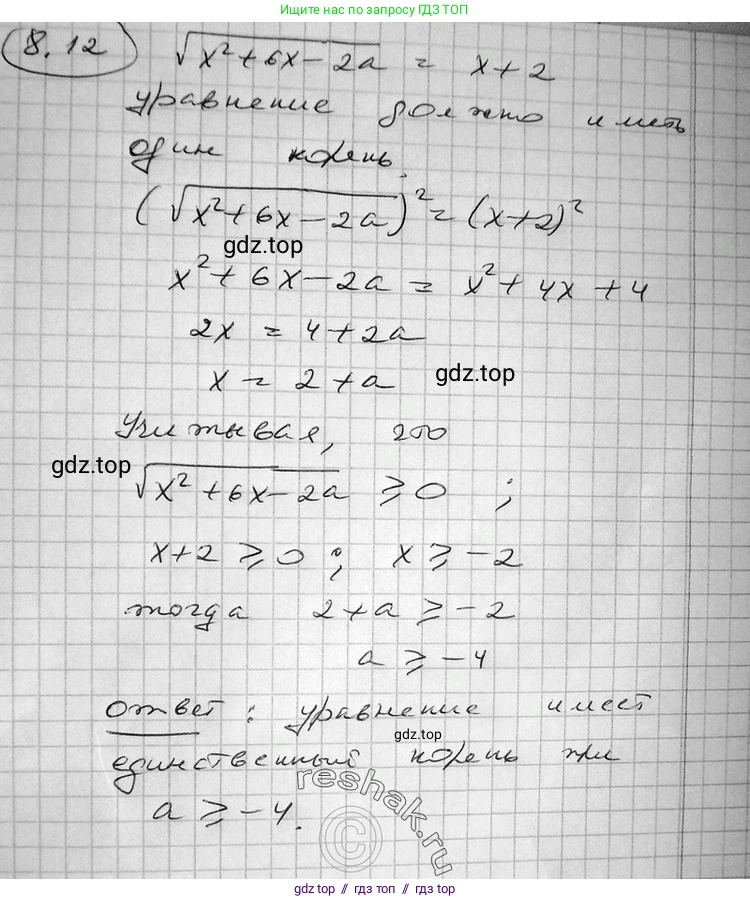 Ищите нас в поисковике по запросу ГДЗ ТОП
8.12 √x²+6x-2a = x+2
уравнение должно иметь
один корень.
(√x²+6x-2a)² = (x+2)²
gdz.top
x²+6x-2a = x²+4x+4
2x = 4+2a
x = 2+a gdz.top
Учитывая, что
gdz.top
√x²+6x-2a ≥ 0 ;
x+2 ≥ 0 ; x ≥ -2
тогда 2+a ≥ -2
a ≥ -4
ответ : уравнение имеет
gdz.top
единственный корень при
a ≥ -4.
reshak.ru
©
gdz.top // гдз топ // gdz.top